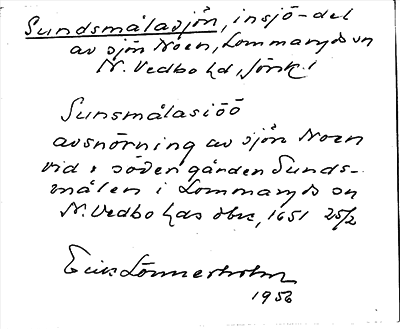 Sundsmålasjön, insjö-del
av sjön Noen, Lommaryds sn
N. Vedbo hd, Jönk. l
Sunsmålasiöö
avsnörning av sjön Noen
vid söder gården Sunds-
målen i Lommaryds sn
N. Vedbo hds dbr, 1651 25/2
Erik Lönnerholm
1956